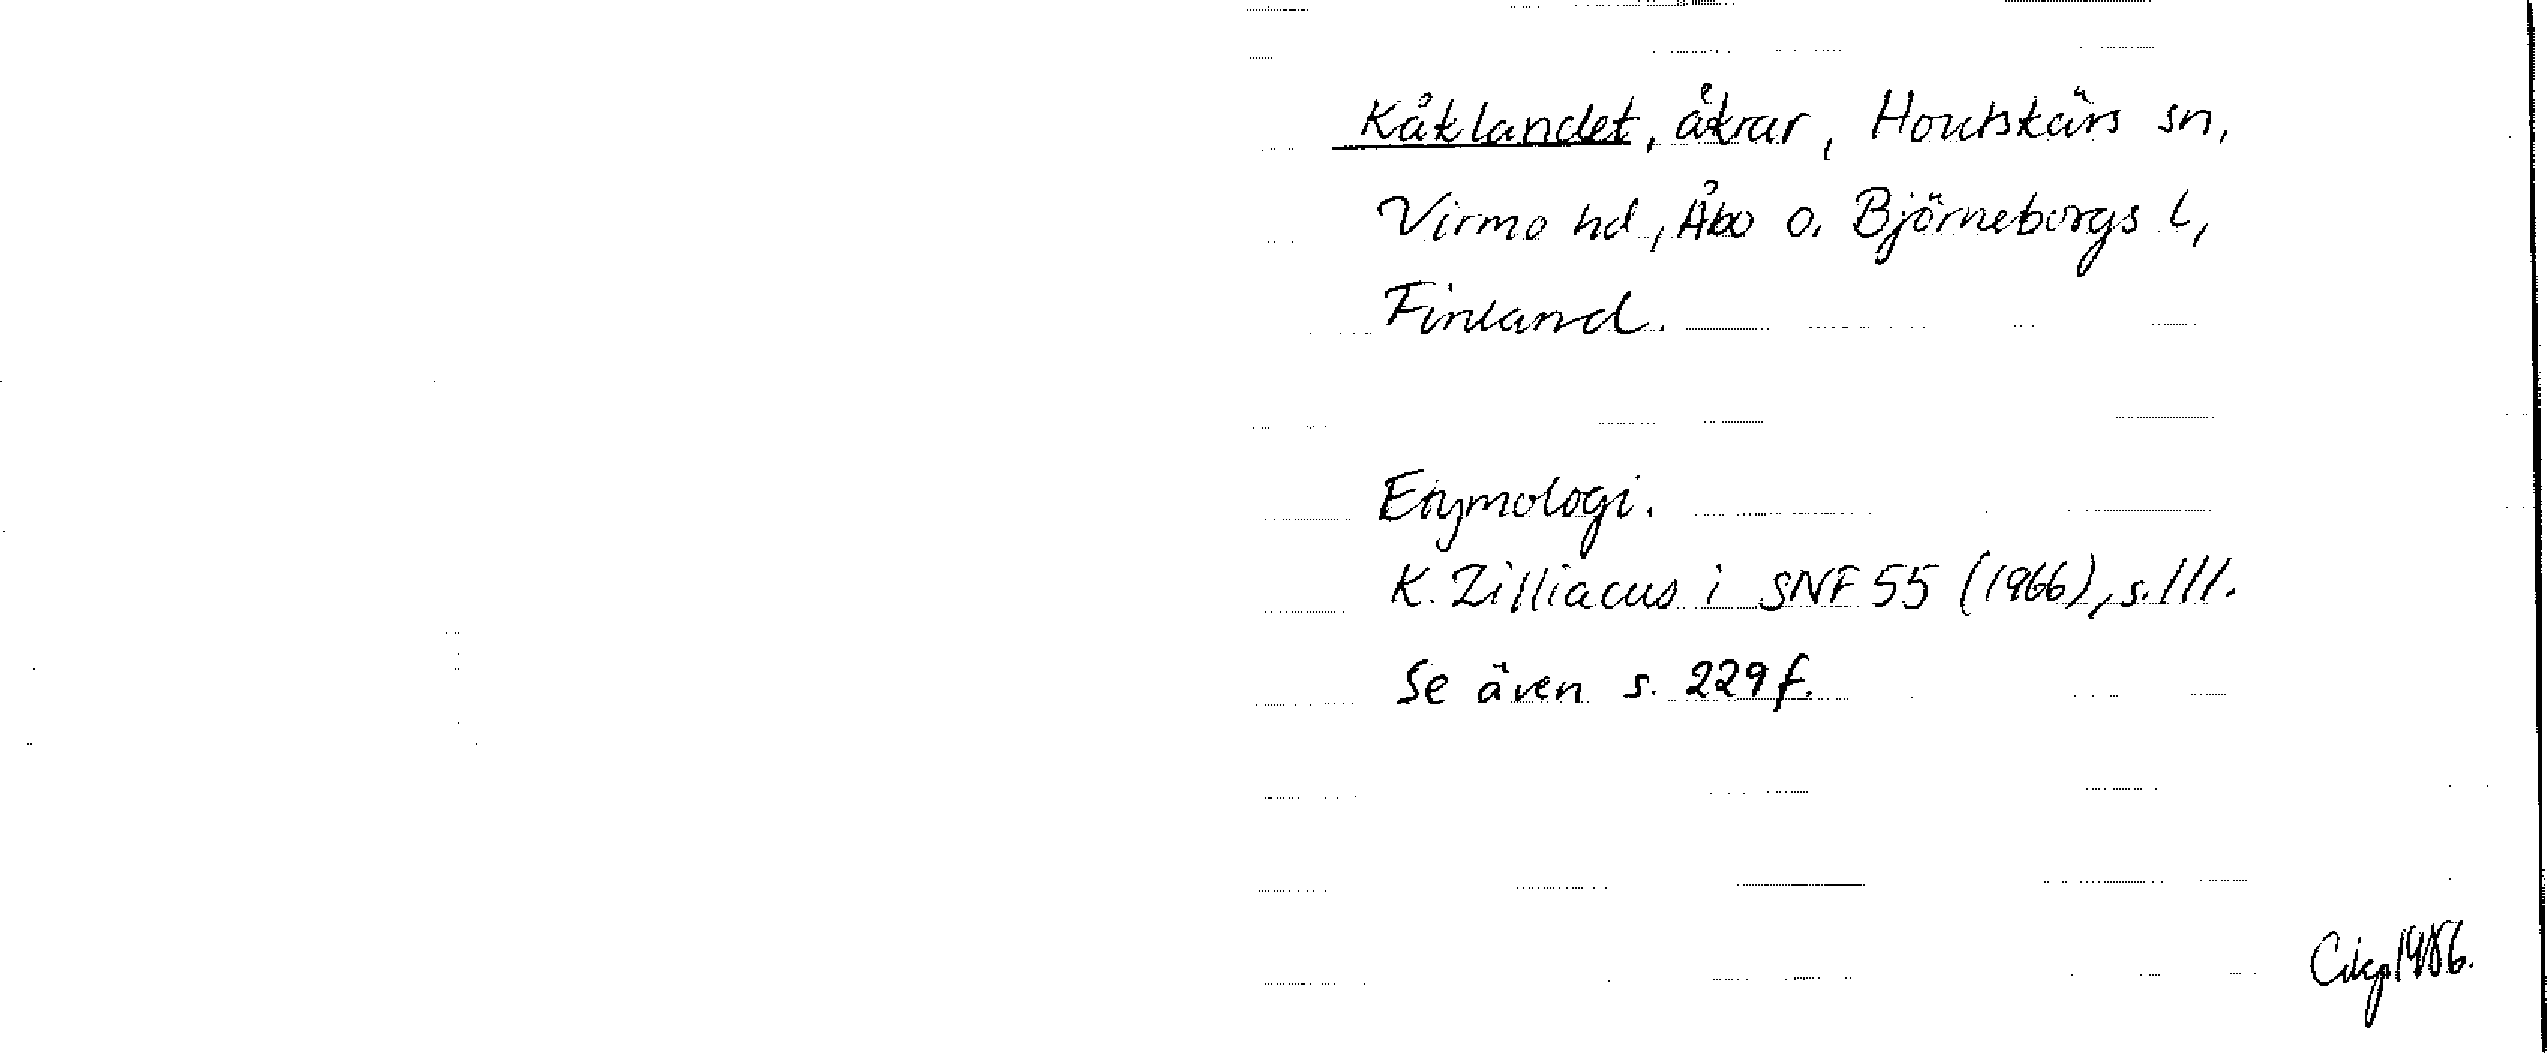 Kåklandet, åkrar, Houtskärs sn,
Virmo hd, Åbo o. Björneborgs l,
Finland.
Etymologi.
K. Zilliacus i SNF 55 (1966), s. 111.
Se även s. 229 f.
1986.